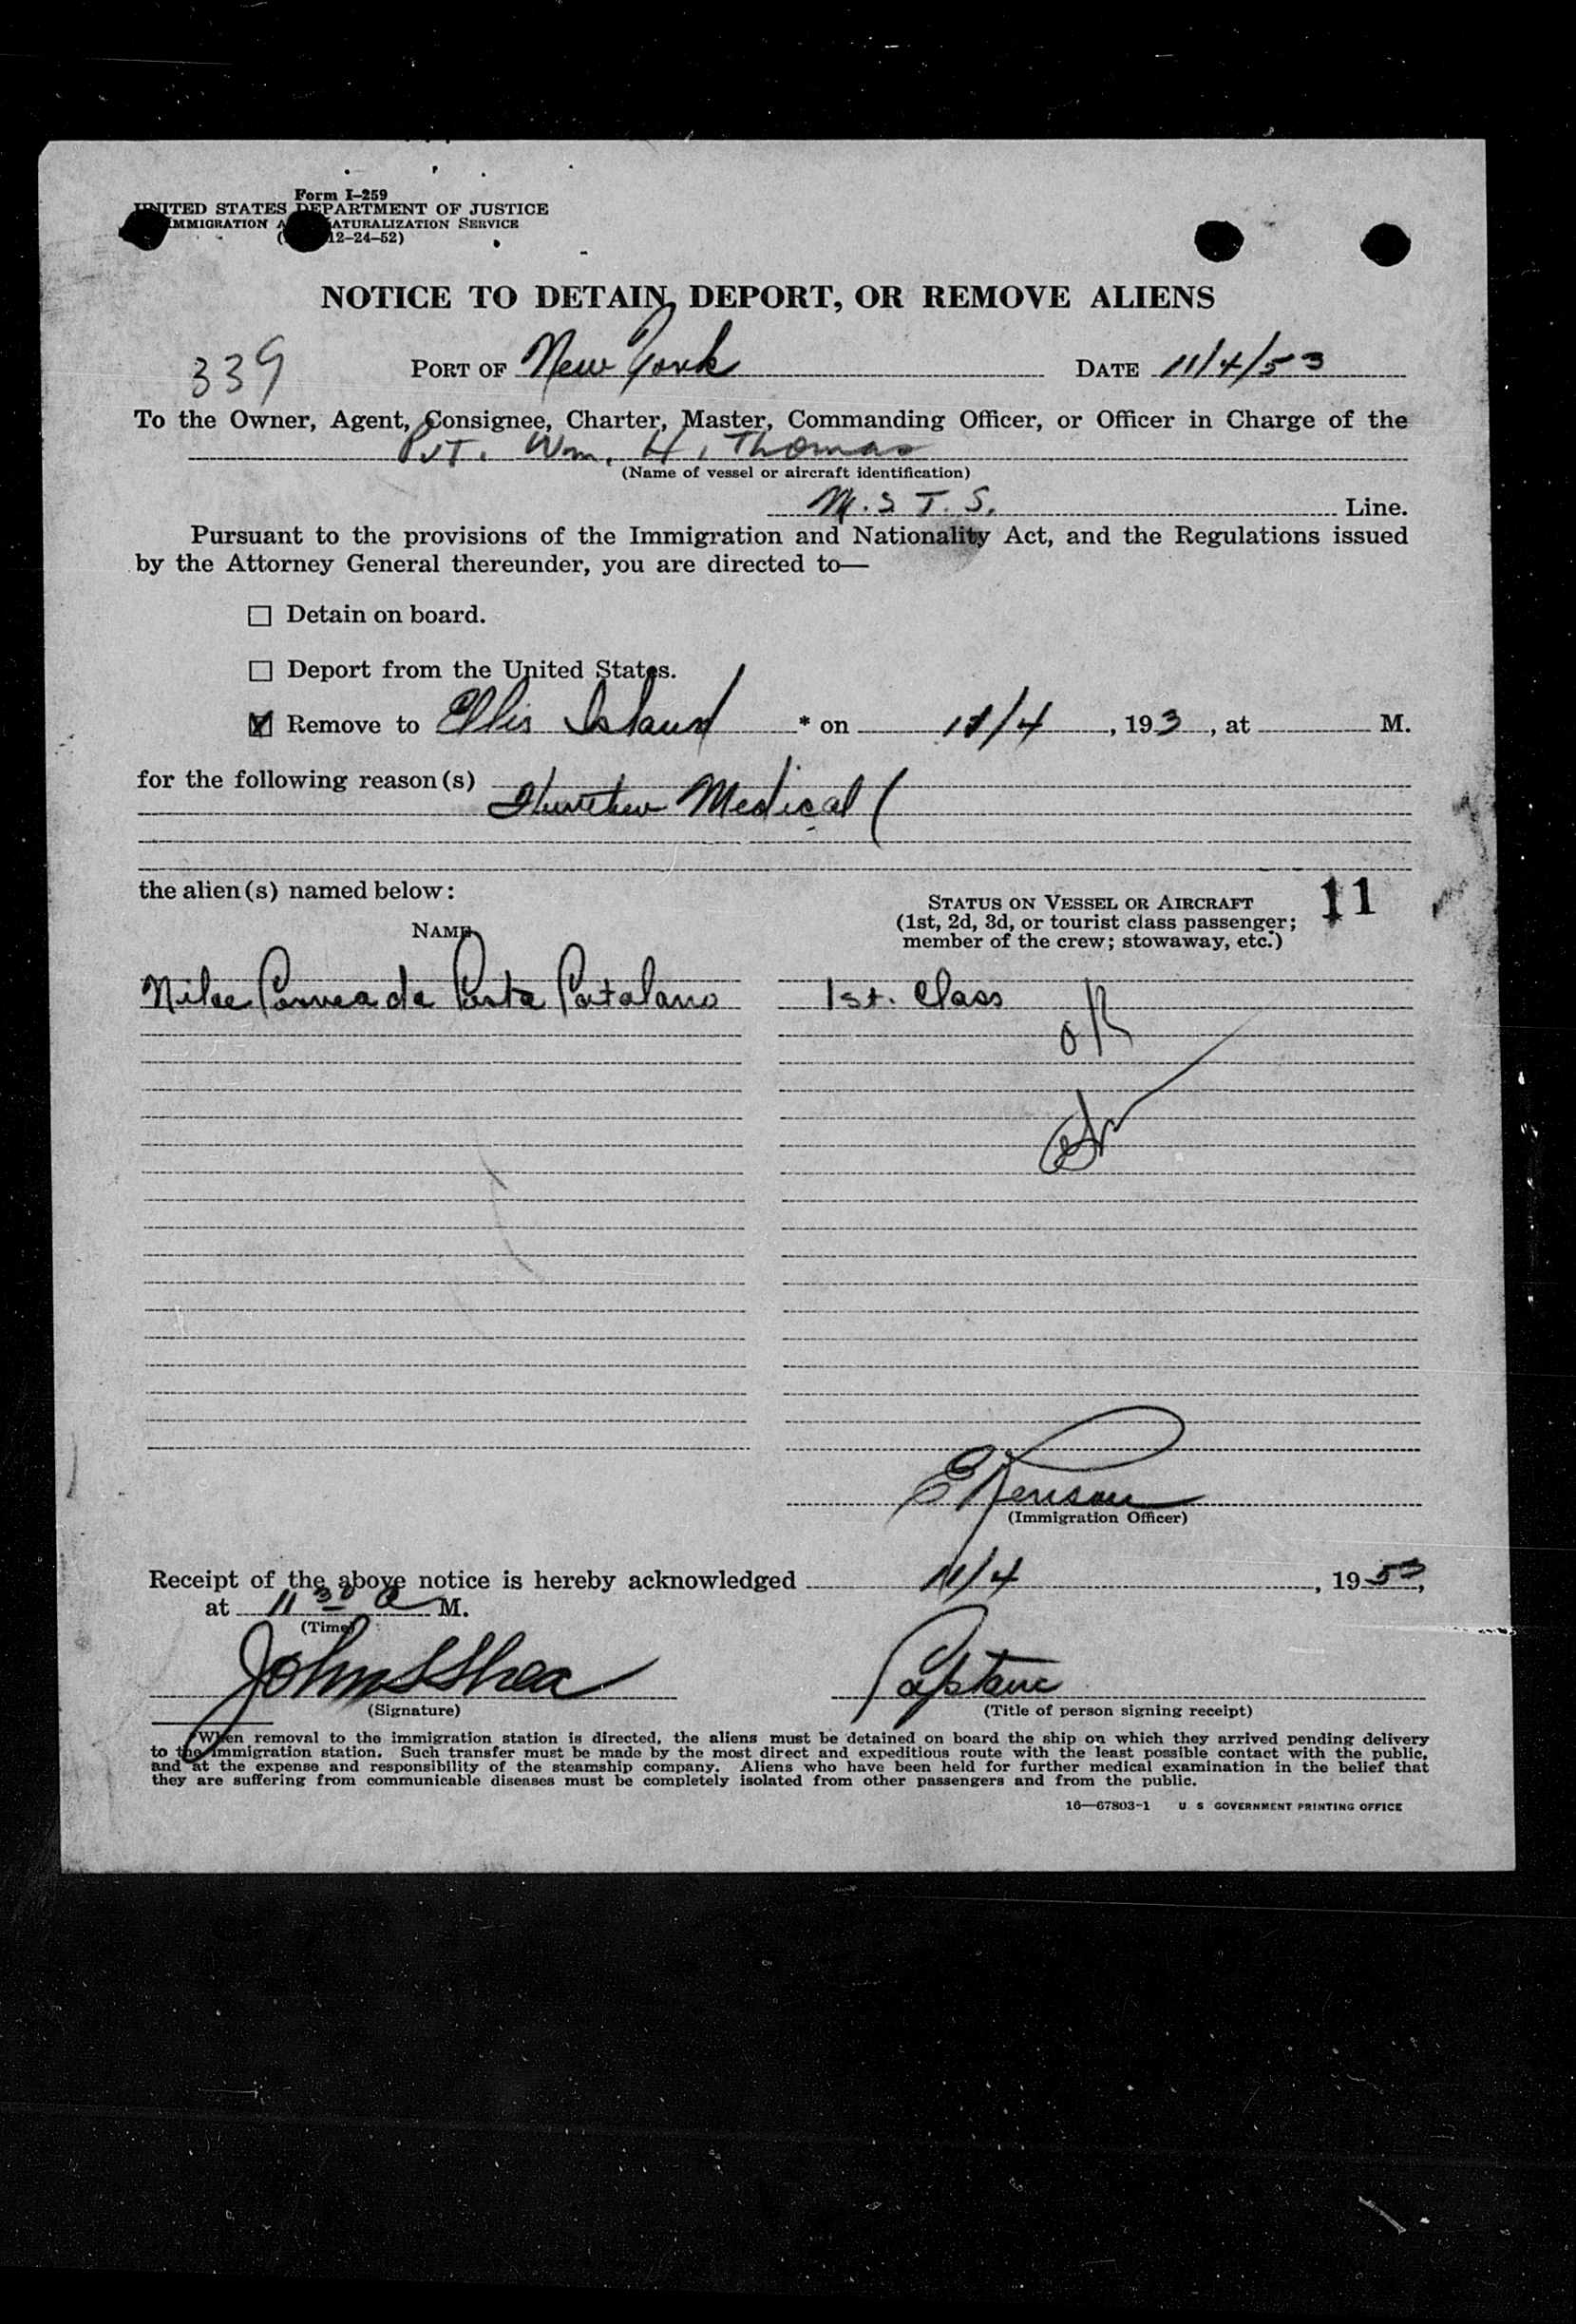 Form I-259
UNITED STATES DEPARTMENT OF JUSTICE
IMMIGRATION NATURALIZATION SERVICE
12-24-52)
NOTICE TO DETAIN, DEPORT, OR REMOVE ALIENS
339 PORT OF New York DATE 11/4/53
To the Owner, Agent, Consignee, Charter, Master, Commanding Officer, or Officer in Charge of the
Pvt. Wm. H. Thomas
(Name of vessel or aircraft identification)
M.S.T.S. Line.
Pursuant to the provisions of the Immigration and Nationality Act, and the Regulations issued
by the Attorney General thereunder, you are directed to—
Detain on board.
Deport from the United States.
Remove to Ellis Island * on 11/4, 193, at M.
for the following reason(s)
Medical
the alien(s) named below:
STATUS ON VESSEL OR AIRCRAFT 11
(1st, 2d, 3d, or tourist class passenger;
NAME
member of the crew; stowaway, etc.)
da Costa Catalano 1st. Class
OK
(Immigration Officer)
Receipt of the above notice is hereby acknowledged 11/4, 1953,
at 11 30 a M.
(Time)
John S Shea
(Signature) (Title of person signing receipt)
*When removal to the immigration station is directed, the aliens must be detained on board the ship on which they arrived pending delivery
to the immigration station. Such transfer must be made by the most direct and expeditious route with the least possible contact with the public,
and at the expense and responsibility of the steamship company. Aliens who have been held for further medical examination in the belief that
they are suffering from communicable diseases must be completely isolated from other passengers and from the public.
16—67803-1 U S GOVERNMENT PRINTING OFFICE